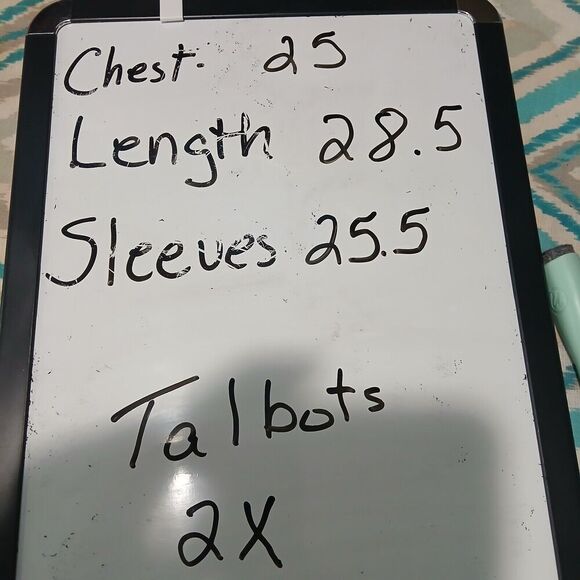 Chest- 25
Length 28.5
Sleeves 25.5
Talbots
2X